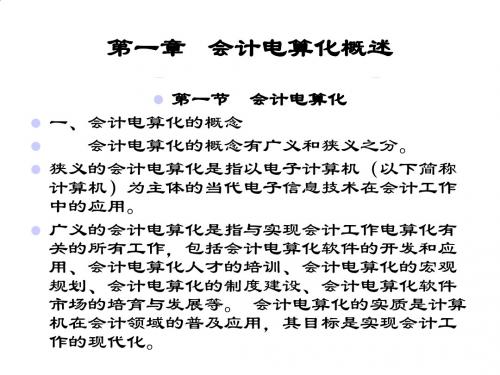 第一章 会计电算化概述
第一节 会计电算化
一、会计电算化的概念
会计电算化的概念有广义和狭义之分。
狭义的会计电算化是指以电子计算机（以下简称
计算机）为主体的当代电子信息技术在会计工作
中的应用。
广义的会计电算化是指与实现会计工作电算化有
关的所有工作，包括会计电算化软件的开发和应
用、会计电算化人才的培训、会计电算化的宏观
规划、会计电算化的制度建设、会计电算化软件
市场的培育与发展等。 会计电算化的实质是计算
机在会计领域的普及应用，其目标是实现会计工
作的现代化。